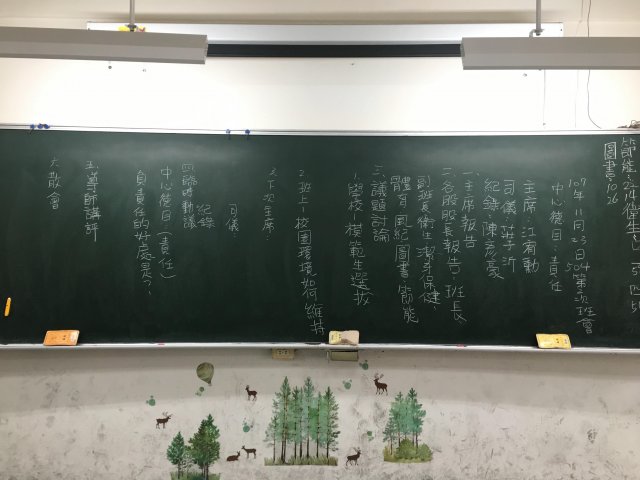 節能
圖書1026
107年11月23日504第次班會
中心德目:責任
主席:江宥勳
司儀:洪子沂
紀錄:陳彥豪
一、主席報告
二、各股股長報告:班長、
副班長、衛生、潔牙保健、
體育、風紀、圖書、節能
三、議題討論
1.學校-模範生選拔
2.班上-校園環境如何維持
3.下次主席:
司儀:
紀錄
四、臨時動議
中心德目(責任)
負責任的好處是?
五、導師講評
六、散會